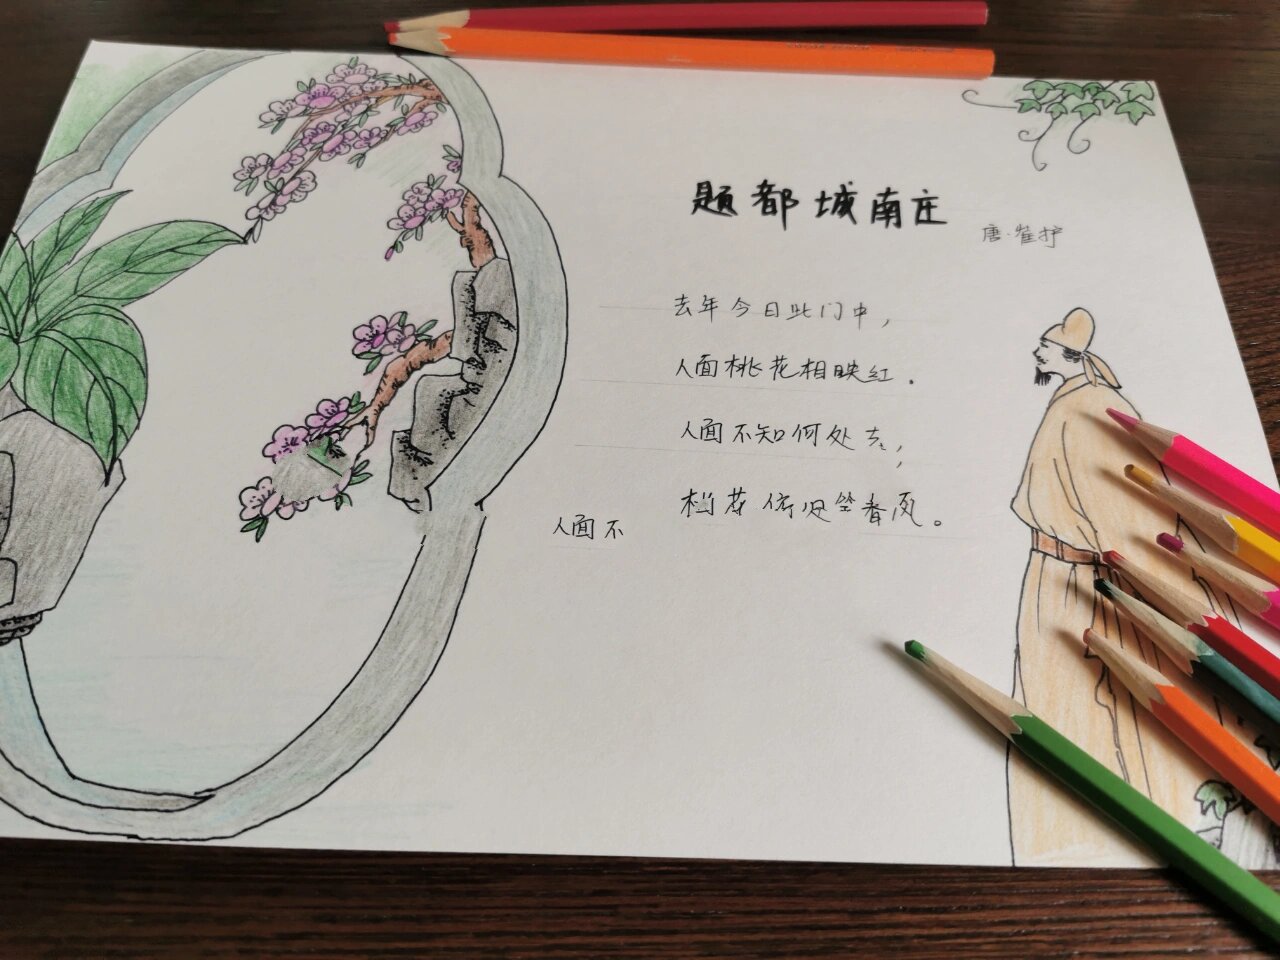 题都城南庄
唐·崔护
去年今日此门中，
人面桃花相映红.
人面不知何处去，
桃花依旧笑春风。
人面不